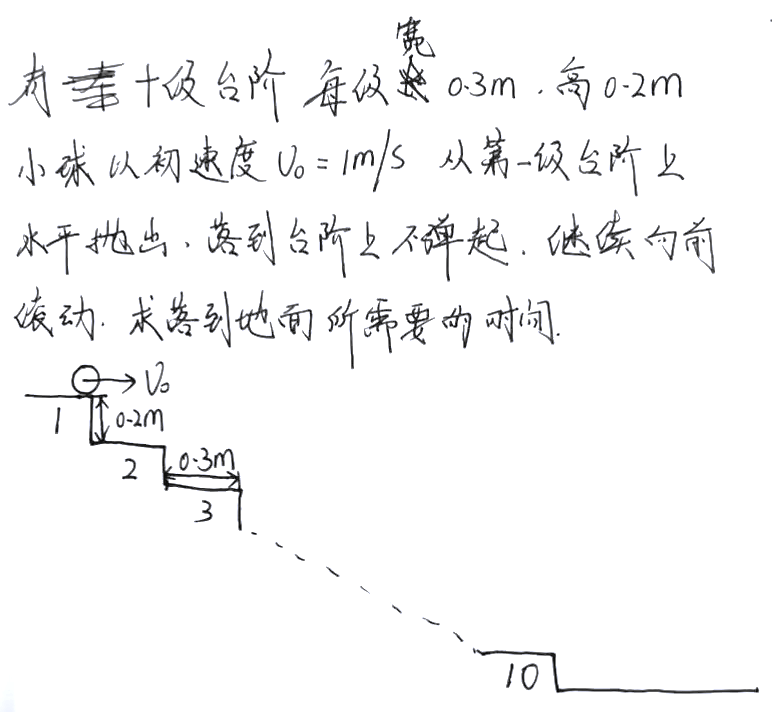 有十级台阶 每级宽0.3m.高0.2m
小球以初速度 V₀=1m/s 从第一级台阶上
水平抛出、落到台阶上不弹起.继续向前
滚动.求落到地面所需要的时间.
V₀
1 0.2m
2 0.3m
3
10